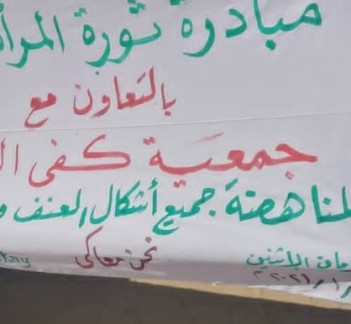 مبادرة ثورة المرأة
بالتعاون مع
جمعية كفى
لمناهضة جميع أشكال العنف و
نحن معاكي
الاثنين